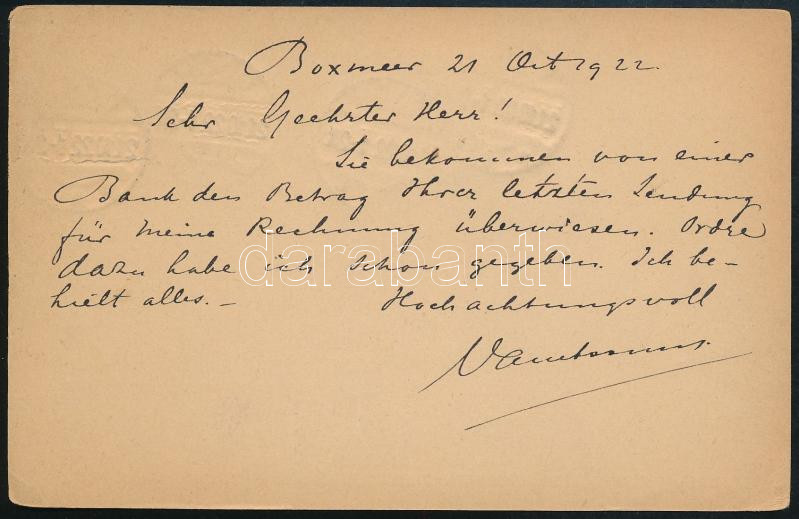 Boxmeer 21 Oct 1922.
Sehr Geehrter Herr!
Sie bekommen von einer
Bank den Betrag Ihrer letzten Sendung
für meine Rechnung überwiesen. Ordre
dazu habe ich schon gegeben. Ich be-
hielt alles. –
Hochachtungsvoll
darabanth